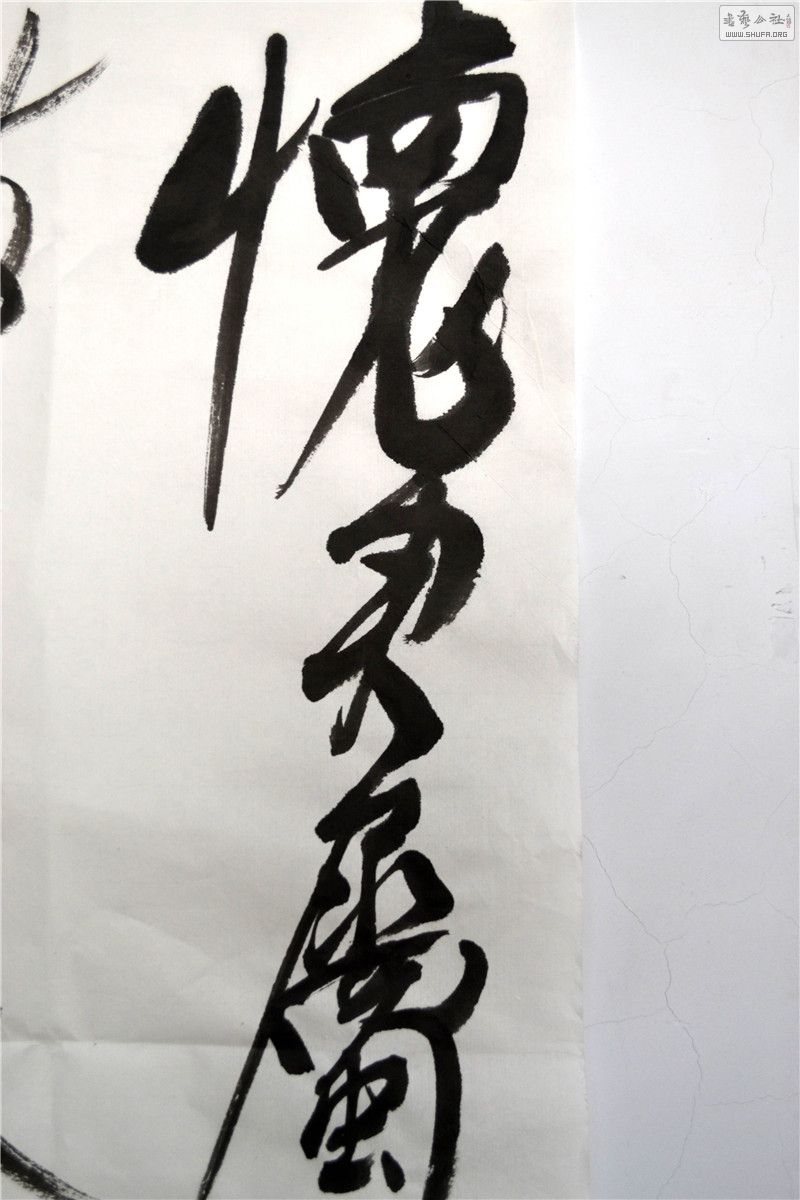 懷君屬
書藝公社
WWW.SHUFA.ORG